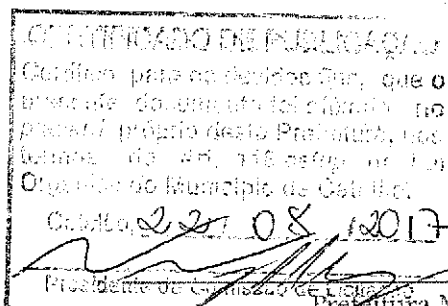 CERTIFICADO DE PUBLICAÇÃO
Certifico para os devidos fins, que o
presente documento foi afixado no
próprio desta Prefeitura, nos
termos da Art. da Lei
Orgânica do Município de
22 08 /2017
Presidente da Comissão de Licitação
Prefeitura